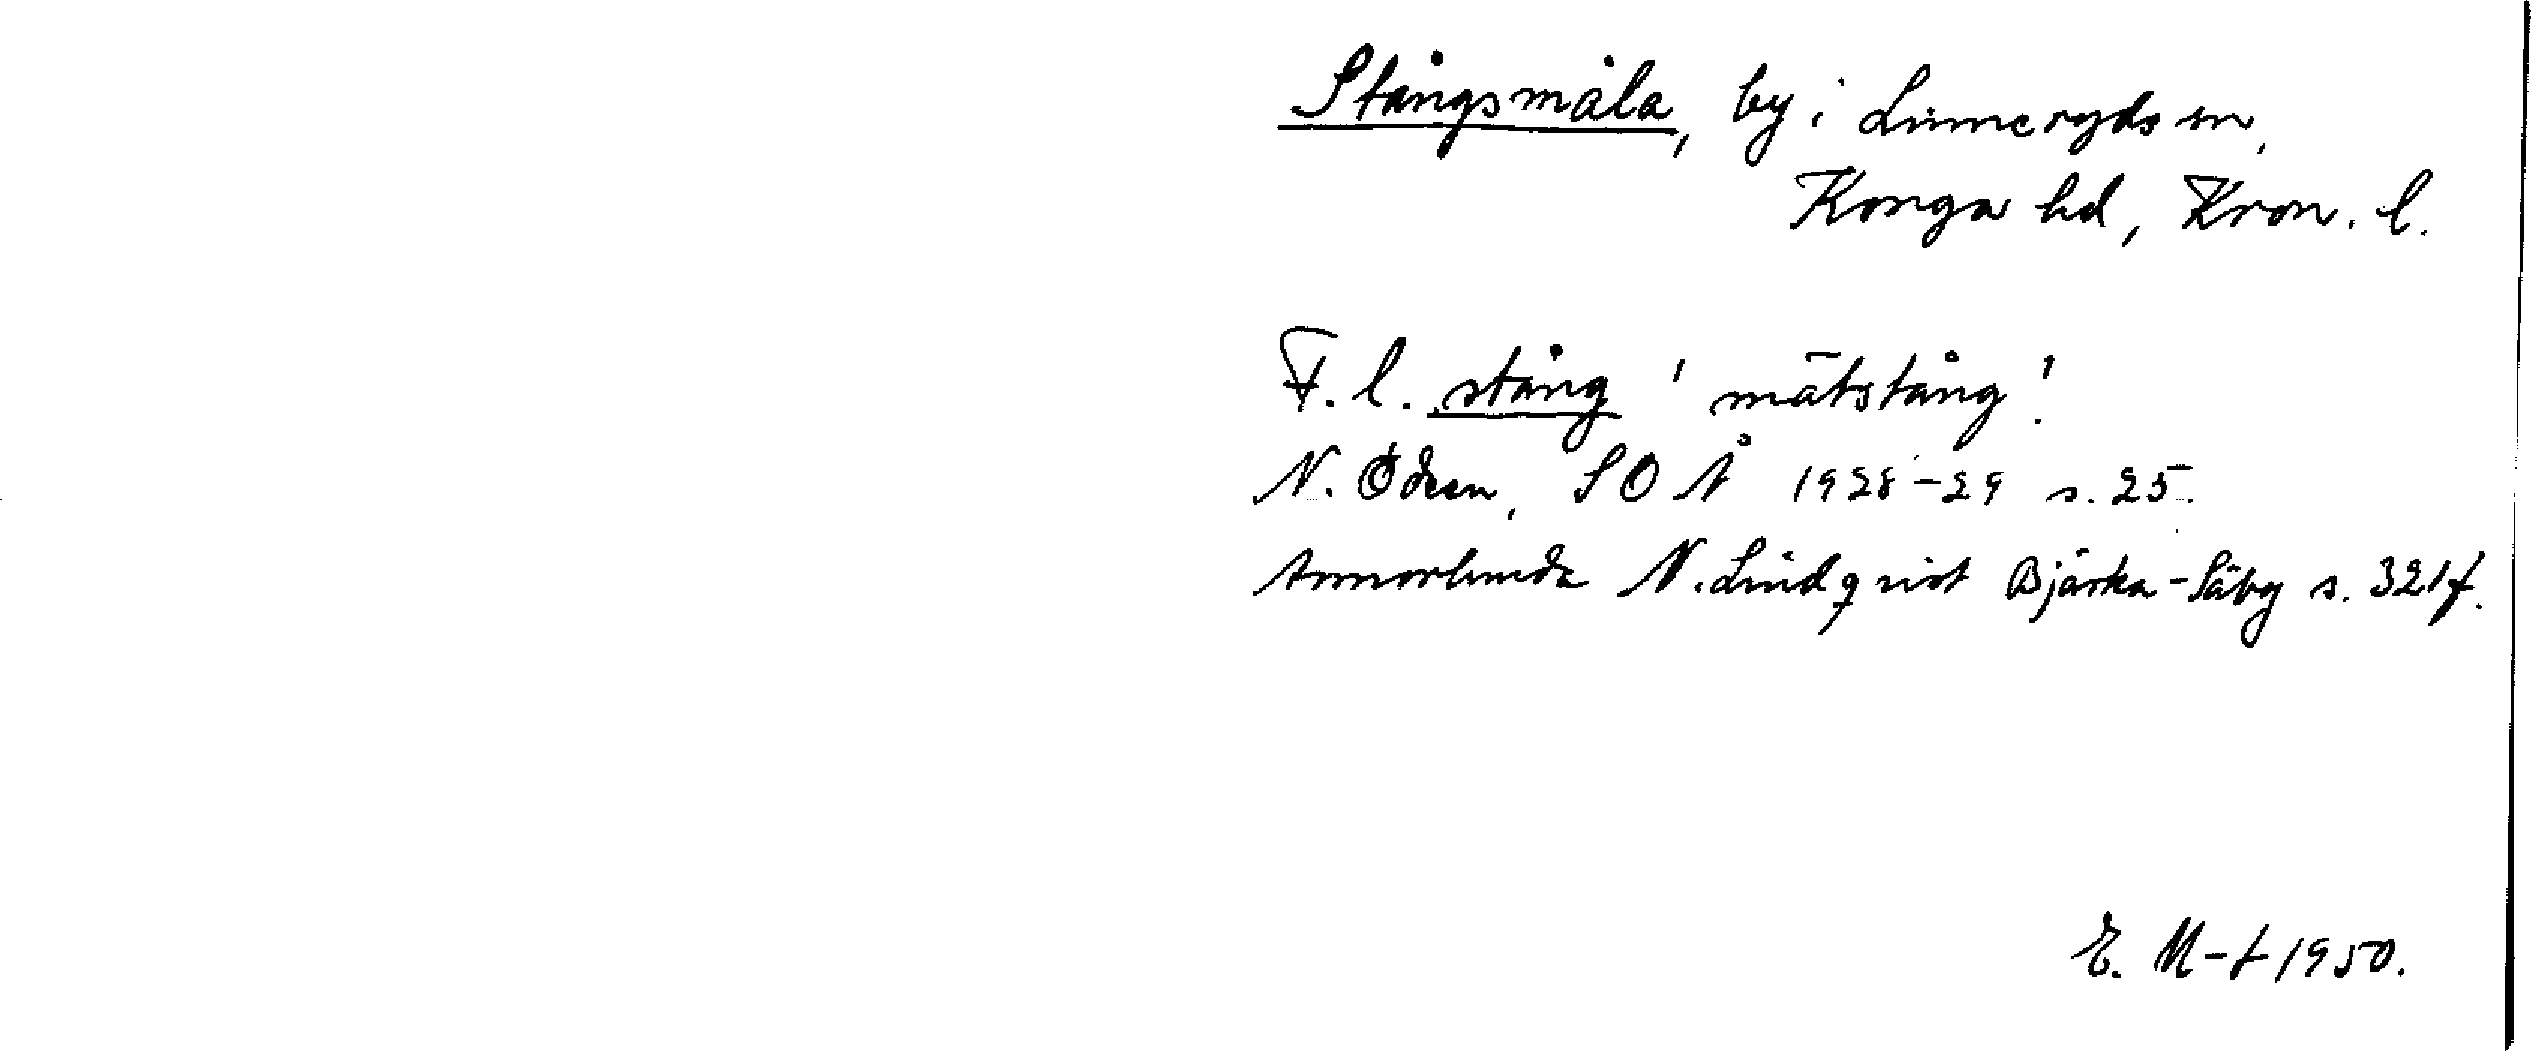 Stångsmåla, by i Linneryds sn,
Konga hd, Kron. l.
F. l. stång 'mätstång'.
N. Ödeen, SOÅ 1928-29 s. 25.
Annorlunda N. Lindqvist Bjärka-Säby s. 321 f.
E. M-t 1950.